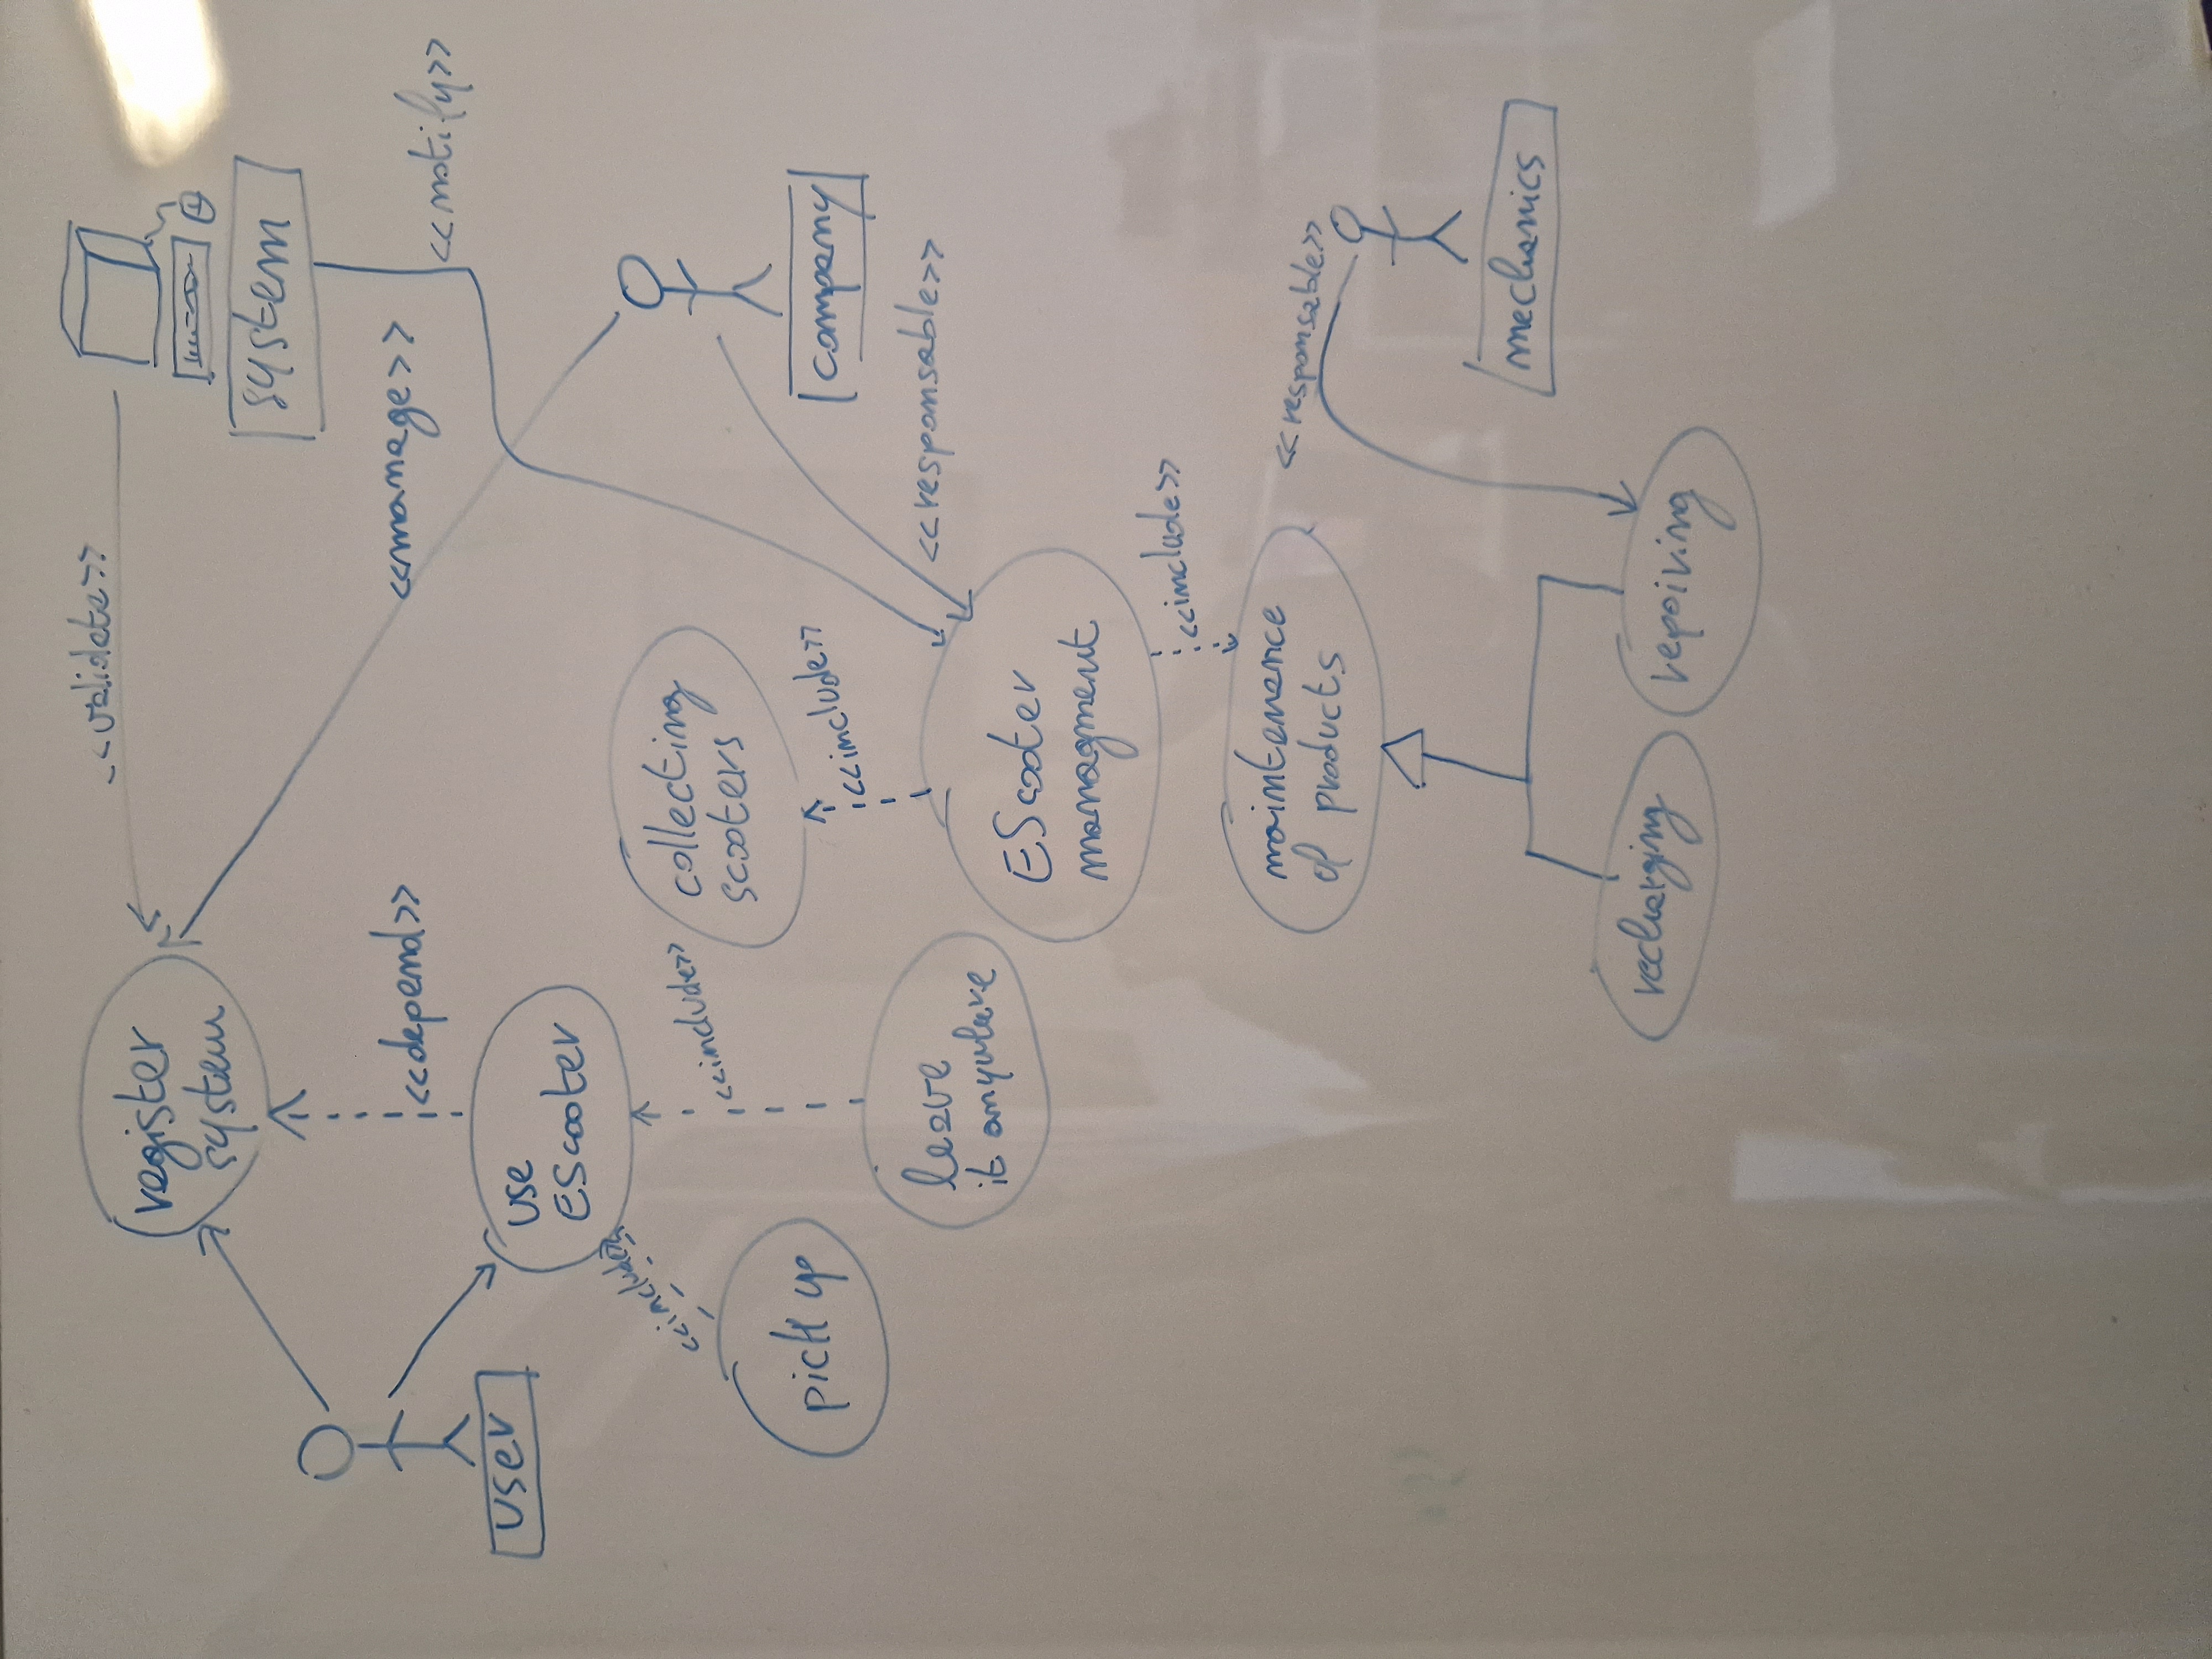 <<validate>>
register
system
system
<<manage>>
<<depend>>
<<notify>>
user
use
EScooter
<<include>>
<<include>>
collecting
scooters
pick up
<<include>>
company
leave
it anywhere
<<responsable>>
EScooter
managment
<<include>>
maintenence
of products
<<responsable>>
mechanics
recharging
repairing